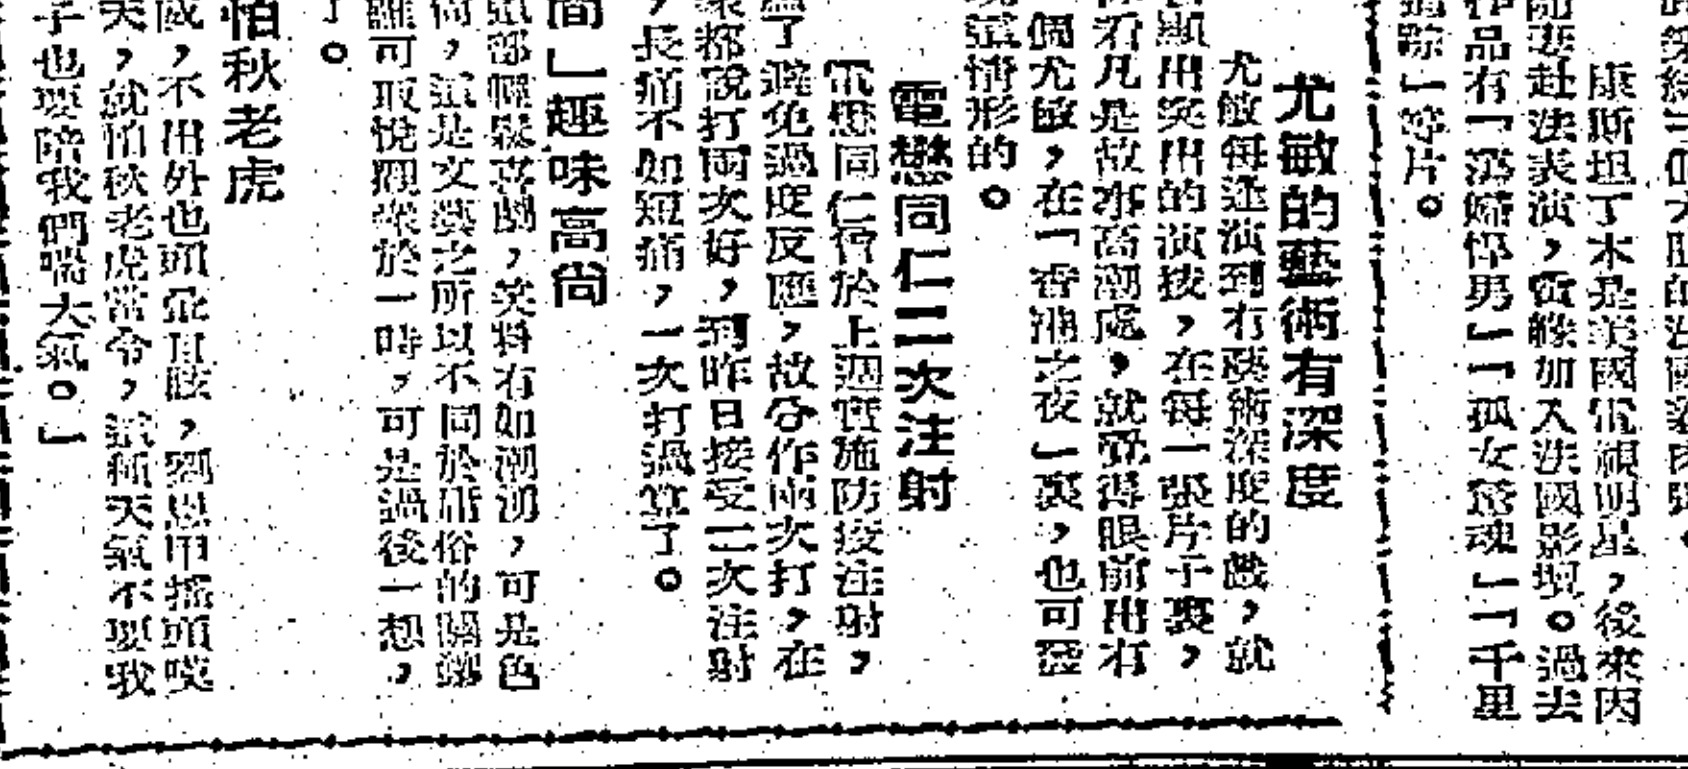 康斯坦丁本是美國電視明星，後來因
赴法表演，加入法國影壇。過去
作品有「婦怀男」「孤女驚魂」「千里
追踪」等片。
尤敏的藝術有深度
尤敏每逢演到有藝術深度的戲，就
顯出突出的演技，在每一張片子裏，
看凡是故事高潮處，就覺得眼前出有
個尤敏，在「香港之夜」裏，也可
這情形的。
電懋同仁二次注射
電懋同仁曾於上週實施防疫注射，
了避免過度反應，故分作兩次打，在
都說打兩次好，到昨日接受二次注射
，長痛不如短痛，一次打過算了。
間」趣味高尚
部輕鬆喜劇，笑料有如潮湧，可是色
尚，這是文藝之所以不同於庸俗的關鍵
雖可取悅觀衆於一時，可是過後一想，
了。
怕秋老虎
，不出外也頭昏目眩，劉恩甲搖頭嘆
天，就怕秋老虎當令，這種天氣不要我
子也要陪我們喘大氣。」